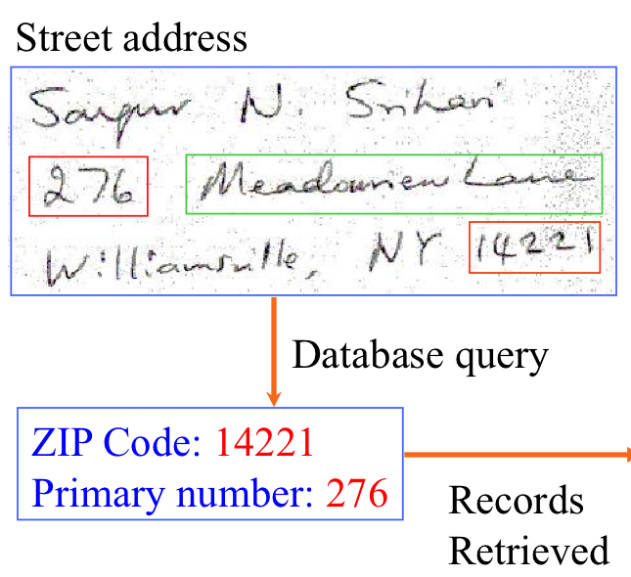 Street address
Sargur N. Srihari
276 Meadowview Lane
Williamsville, NY 14221
Database query
ZIP Code: 14221
Primary number: 276
Records
Retrieved